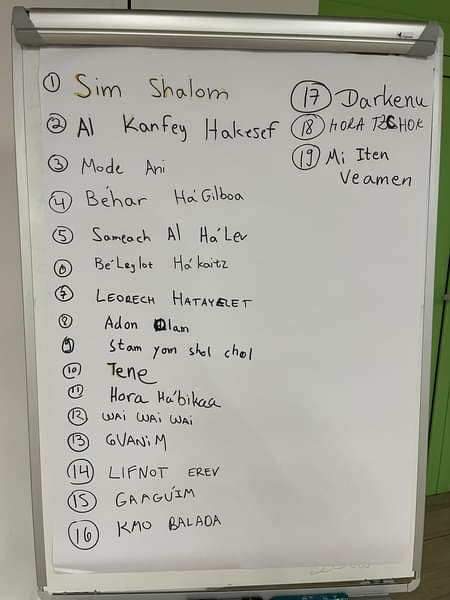 1 Sim Shalom
2 Al Kanfey Hakesef
3 Mode Ani
4 Be'har Ha'Gilboa
5 Sameach Al Ha'Lev
6 Be'Leylot Ha'kaitz
7 LEORECH HATAYELET
8 Adon Olam
9 Stam yom shel chol
10 Tene
11 Hora Ha'bikaa
12 WAI WAI WAI
13 GVANIM
14 LIFNOT EREV
15 GAAGU'IM
16 KMO BALADA
17 Darkenu
18 HORA TZCHOK
19 Mi Iten
Veamen